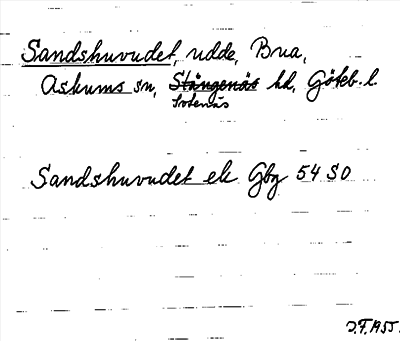 Sandshuvudet, udde, Bua,
Askums sn, Stångenäs hd, Göteb. l.
Sotenäs
Sandshuvudet ek Gbg 54 SO
J.F. 1955.